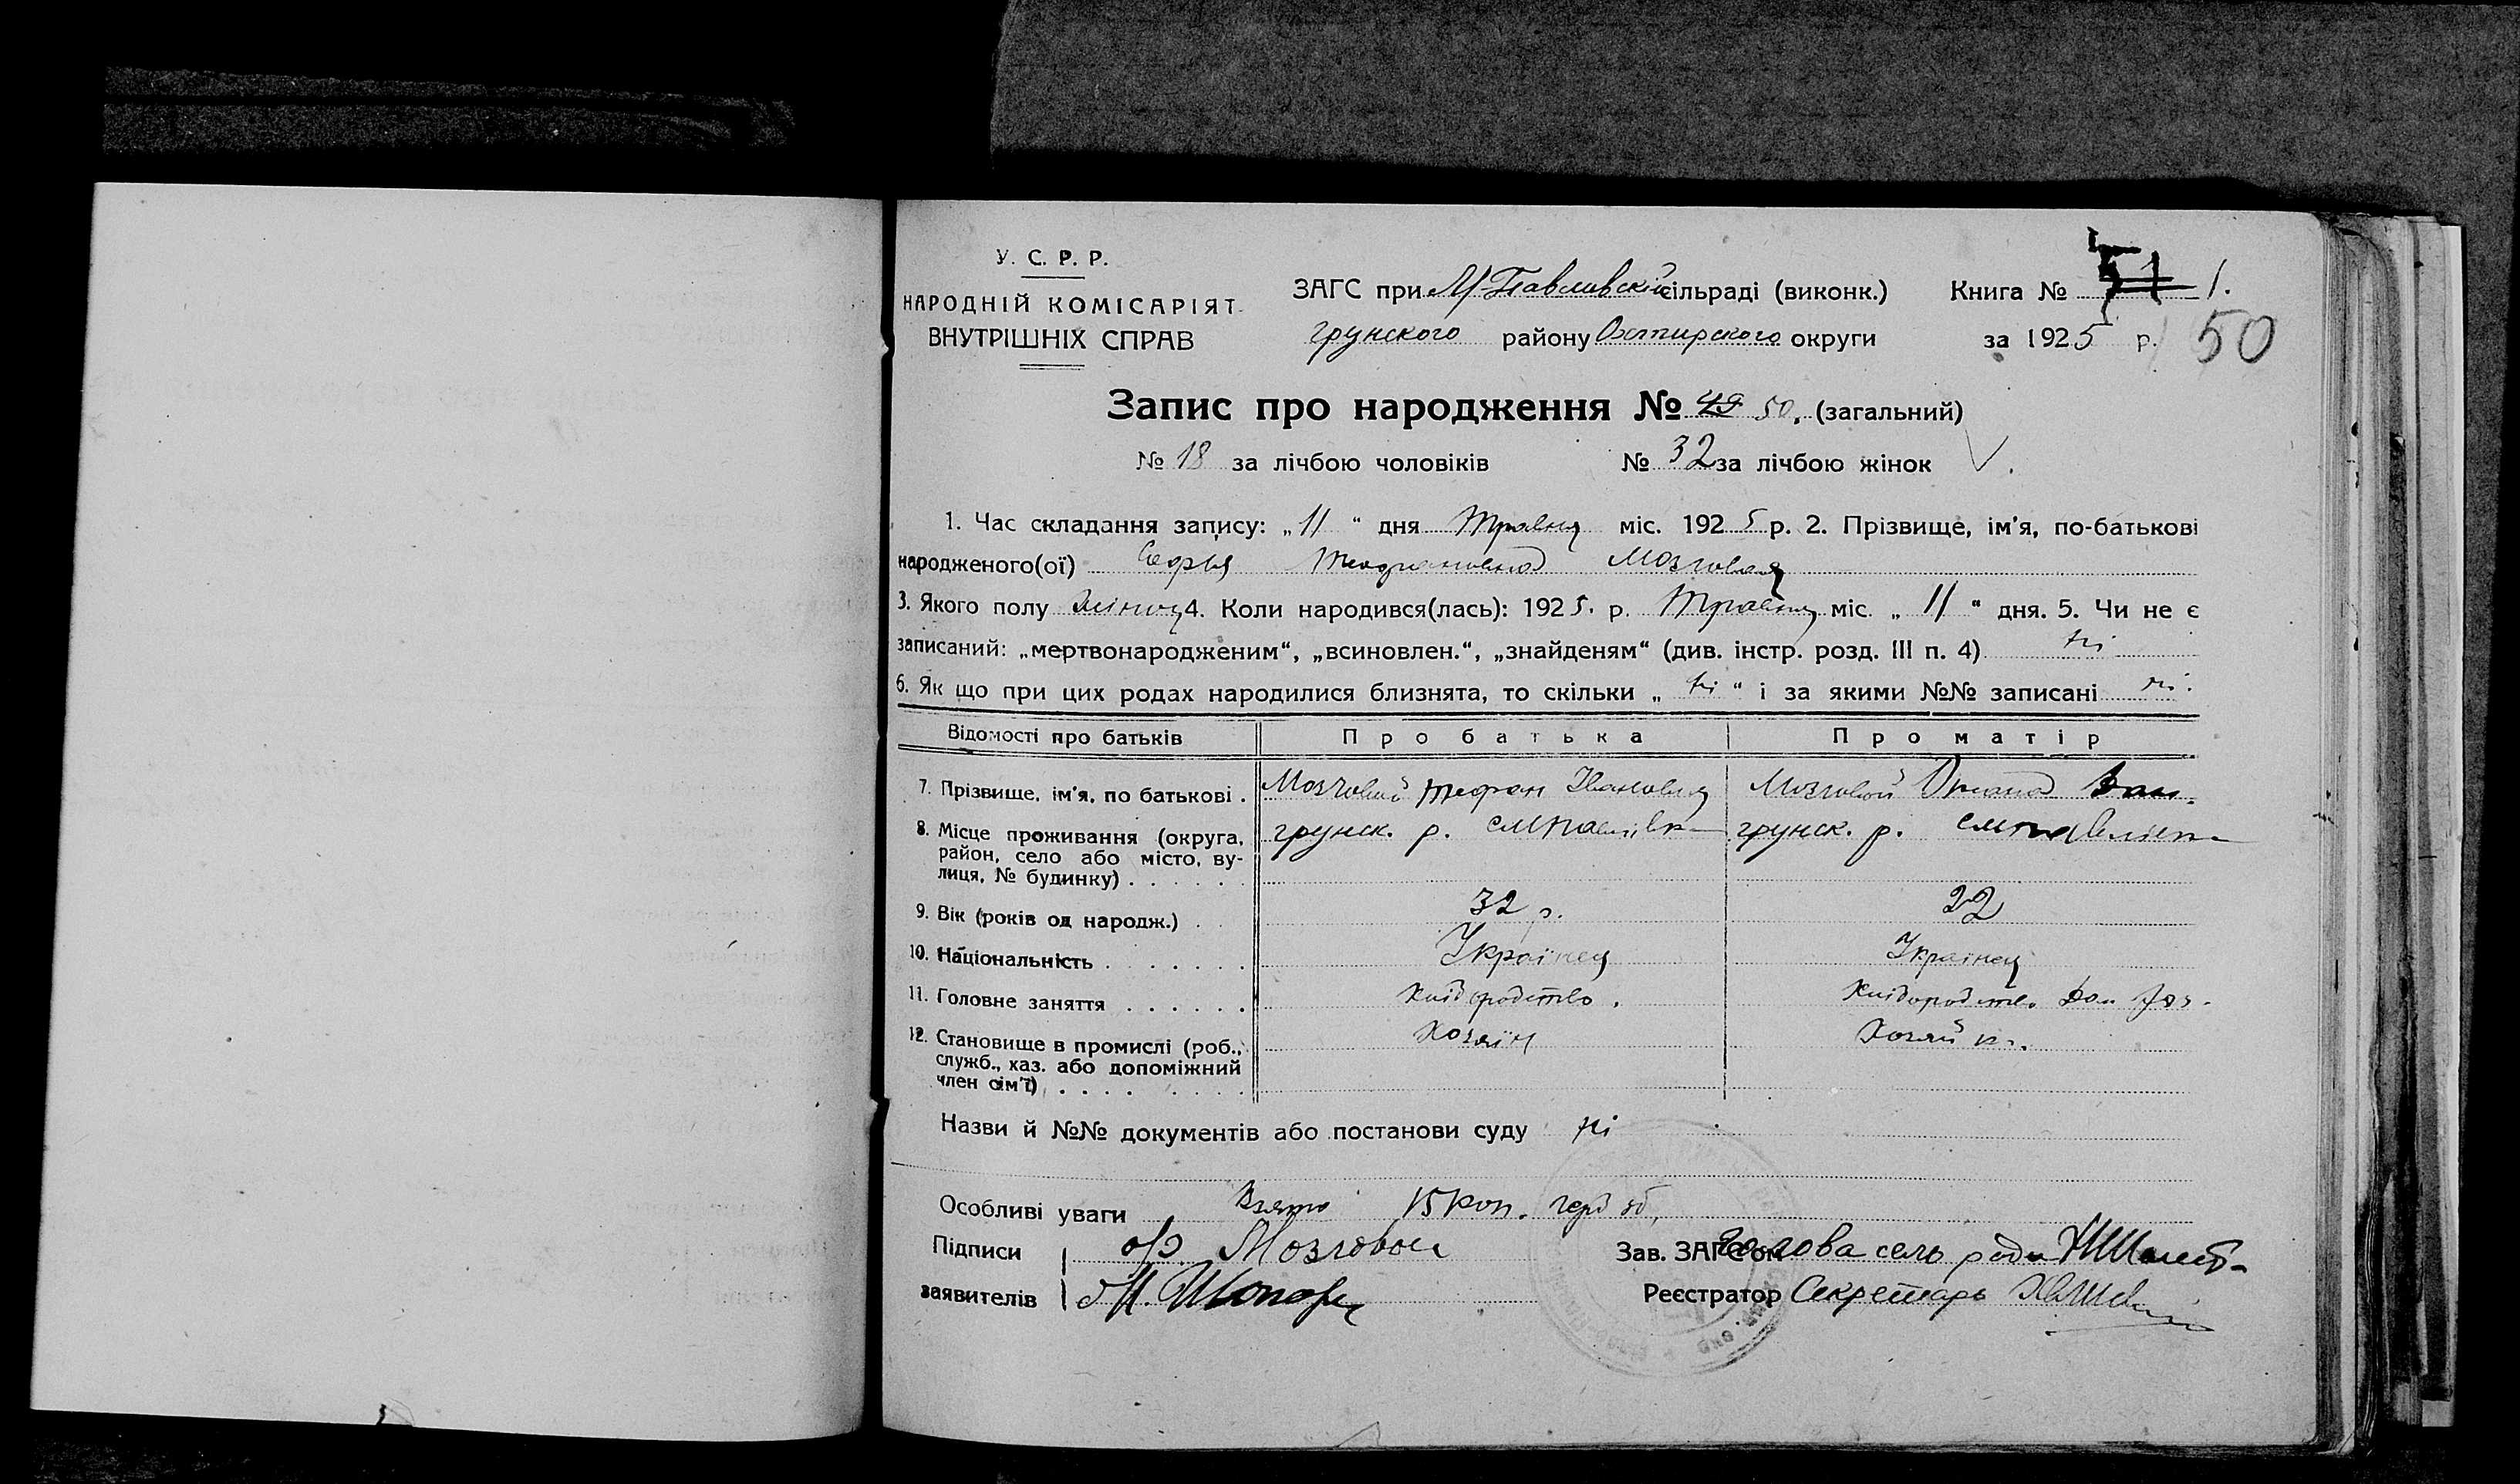 У. С. Р. Р.
НАРОДНІЙ КОМІСАРІЯТ
ВНУТРІШНІХ СПРАВ
ЗАГС при М-Павливский сільраді (виконк.) Книга № 1.
грунского району Охтирского округи за 1925 р. 50
Запис про народження № 49 50. (загальний)
№ 18 за лічбою чоловіків № 32 за лічбою жінок
1. Час складання запису: „11“ дня Травня міс. 1925 р. 2. Прізвище, ім'я, по-батькові
народженого(ої) Софья Мозговая
3. Якого полу 4. Коли народився(лась): 1925. р. Травня міс. „11“ дня. 5. Чи не є
записаний: „мертвонародженим“, „всиновлен.“, „знайденям“ (див. інстр. розд. III п. 4) ні
6. Як що при цих родах народилися близнята, то скільки „ні“ і за якими №№ записані ні.
Відомості про батьків Про батька Про матір
7. Прізвище, ім'я, по батькові . Мозговий Тефан Іванович Мозговой
8. Місце проживання (округа, грунск. р. смпавлівка грунск. р.
район, село або місто, ву-
лиця, № будинку) . . . . . .
9. Вік (років од народж.) . . 32 р. 22
10. Національність . . . . . . . Українец Українец
11. Головне заняття . . . . . . Хлібородство.
12. Становище в промислі (роб., Хозяїн
служб., хаз. або допоміжний
член сім'ї) . . . . . . . .
Назви й №№ документів або постанови суду ні
Особливі уваги Взято 15 коп. герб зб.
Підписи Мозговой Зав. ЗАГС'ом Голова сель ради
заявителів Реєстратор Секретарь